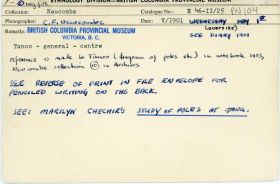 ETHNOLOGY DIVISION - BRITISH COLUMBIA PROVINCIAL MUSEUM
Collection: Newcombe Catalogue No.: E 46-11/25 PN 104
Photographer: C.F. Newcombe Date: V/1901 WEDNESDAY MAY 1st
Remarks: BRITISH COLUMBIA PROVINCIAL MUSEUM (overside)
VICTORIA, B. C. SEE DIARY 1901
Tanoo - general - centre
reference is made to Tanoo (diagram of poles etc.) in notebook 1903,
Newcombe collection in Archives
SEE REVERSE OF PRINT IN FILE ENVELOPE FOR
PENCILED WRITING ON THE BACK.
SEE: MARILYN CHECHIK'S STUDY OF POLES AT TANU.